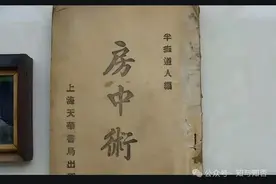 半痴道人編
房中術
上海天華書局出
公众号